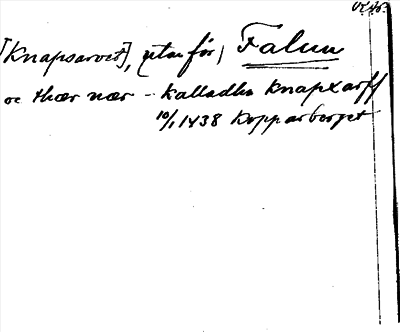 [Knapsarvet], utanför, Falun
oc thær nær – kalladha knapxarff
10/1 1438 Kopparberget